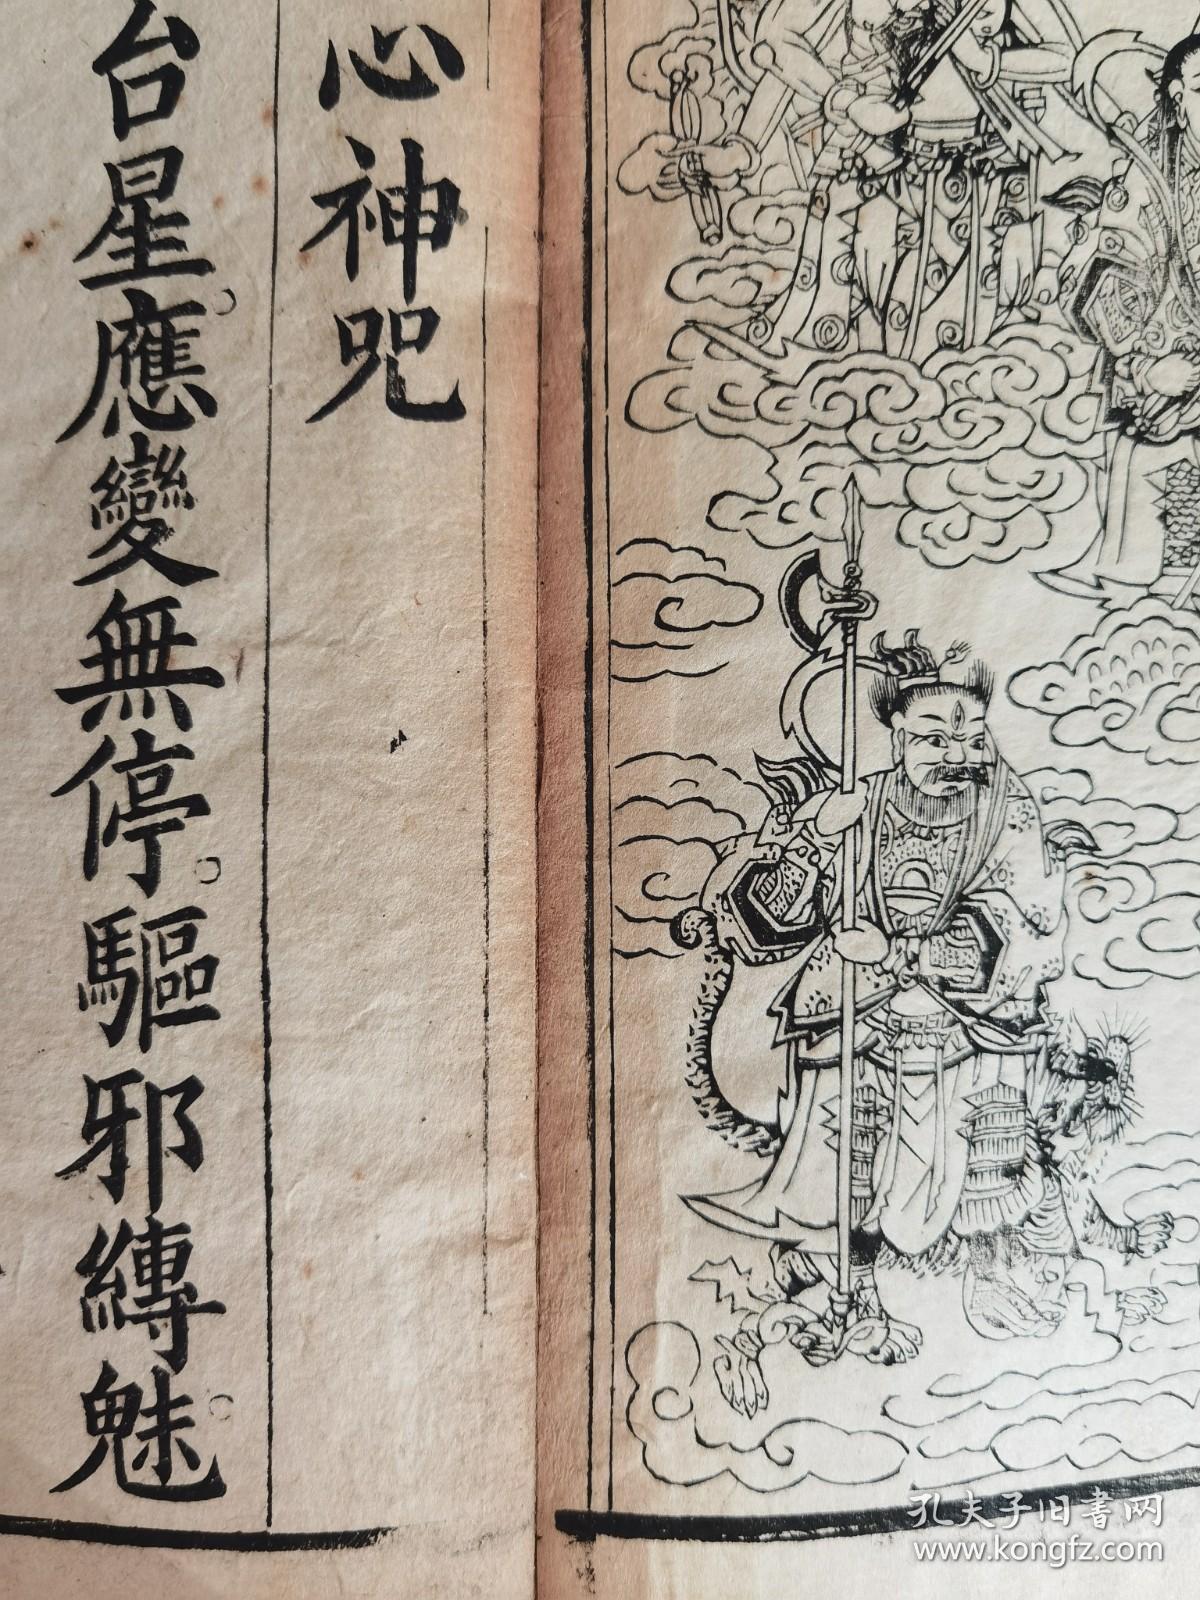 心神咒
台星應變無停驅邪縛魅
孔夫子旧書网
www.kongfz.com